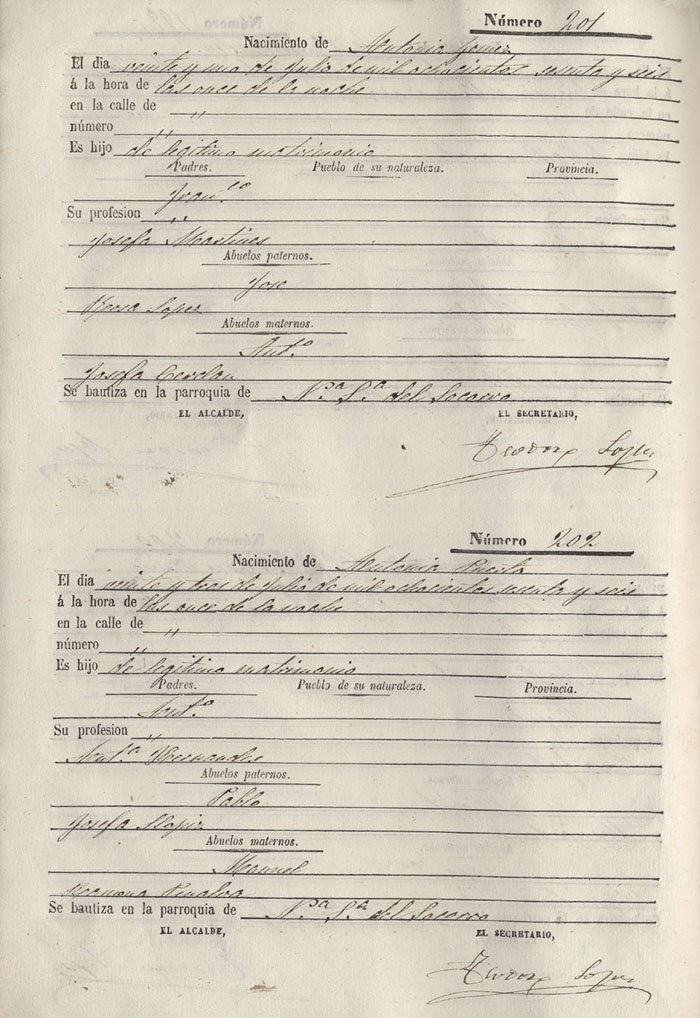 Número 201
Nacimiento de Antonia Gomez
El dia veinte y uno de Julio de mil ochocientos sesenta y seis
á la hora de las once de la noche
en la calle de "
número "
Es hijo de legitimo matrimonio
Padres. Pueblo de su naturaleza. Provincia.
Fran.co
Su profesion "
Josefa Martines
Abuelos paternos.
Jose
Rosa Lopez
Abuelos maternos.
Ant.o
Josefa Cerdan
Se bautiza en la parroquia de N.a S.a del Socorro
EL ALCALDE, EL SECRETARIO,
Teodoro Lopez
Número 202
Nacimiento de Antonia Puerta
El dia veinte y tres de Julio de mil ochocientos sesenta y seis
á la hora de las once de la noche
en la calle de "
número "
Es hijo de legitimo matrimonio
Padres. Pueblo de su naturaleza. Provincia.
Ant.o
Su profesion "
Ant.a Hernandez
Abuelos paternos.
Pablo
Josefa
Abuelos maternos.
Manuel
Mariana Penalva
Se bautiza en la parroquia de N.a S.a del Socorro
EL ALCALDE, EL SECRETARIO,
Teodoro Lopez